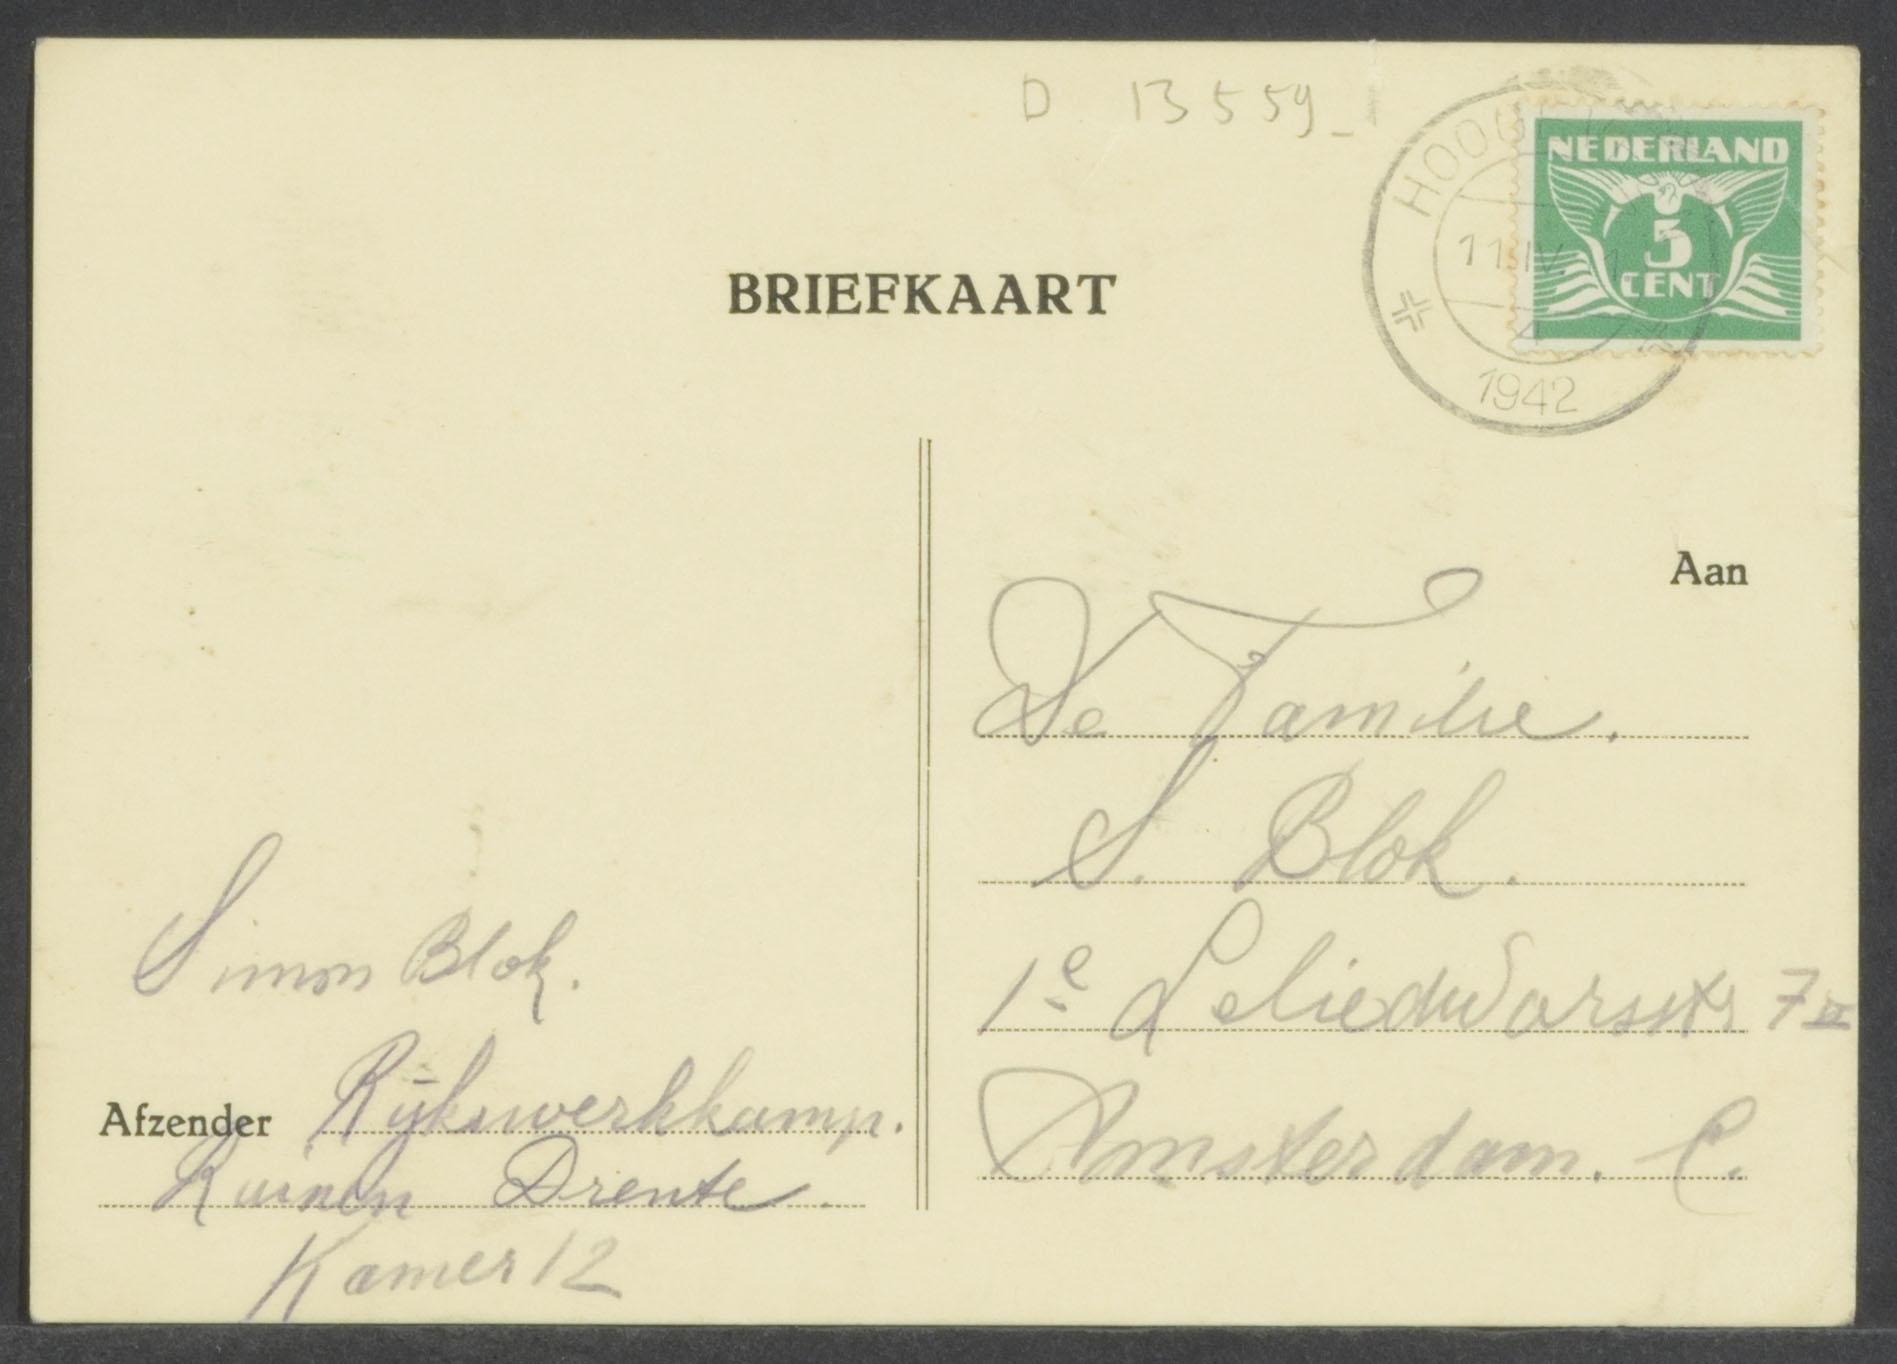 D 13559-
NEDERLAND
5
CENT
11.IV.
4
1942
BRIEFKAART
Aan
De Familie.
S. Blok.
1e Leliedwarsstr 7 II
Amsterdam. C.
Simon Blok.
Afzender Rijkswerkkamp.
Ruinen Drente.
Kamer 12